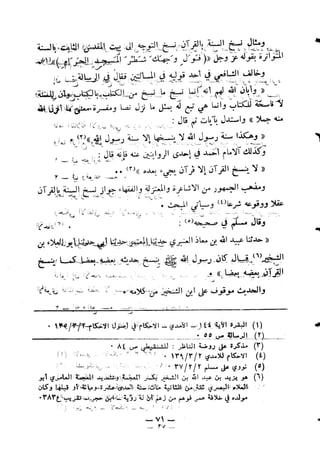 ومثال نسخ السنة بالقرآن نسخ التوجه الى بيت المقدس الثابت بالسنة
المتواترة بقوله عز وجل (( فول وجهك شطر المسجد الحرام ))(١)
وخالف الشافعي في احد قوليه في المسألتين فقال في الرسالة
(( وأبان الله لهم أنه انما نسخ ما نسخ من الكتاب بالكتاب وان السنة
لا ناسخة للكتاب وانما هي تبع له بمثل ما نزل نصا ومفسرة معنى ما انزل الله
منه جملا )) واستدل بآيات ثم قال :
(( وهكذا سنة رسول الله لا ينسخها الا سنة رسول الله ))(٢)
وكذلك الامام احمد في احدى الروايتين عنه فانه قال :
(( لا ينسخ القرآن إلا قرآن يجيء بعده ))(٣)
ومذهب الجمهور من الاشاعرة والمعتزلة والفقهاء جواز نسخ السنة بالقرآن
عقلا ووقوعه شرعا(٤) وسيأتي البحث .
وقال مسلم في صحيحه(٥) :
(( حدثنا عبد الله بن معاذ العنبري حدثنا المعتمر حدثنا أبي حدثنا أبو العلاء بن
الشخير(٦) قال كان رسول الله ﷺ ينسخ حديثه بعضه بعضا كما ينسخ
القرآن بعضه بعضا )) .
والحديث موقوف على ابن الشخير من كلامه .
(١) البقرة الآية ١٤٤ – الآمدي – الاحكام في أصول الاحكام
(٢) الرسالة ص ٥٥ .
(٣) مذكرة على روضة الناظر : للشنقيطي ص ٨٤ .
(٤) الاحكام للآمدي ١٣٩/٣/٢ .
(٥) نووي على مسلم ٣٧/٢/٢ .
(٦) هو يزيد بن عبد الله بن الشخير بكسر المعجمة وتشديد المعجمة العامري أبو
العلاء البصري ثقة من الثانية مات سنة احدى عشرة ومائة أو قبلها وكان
مولده في خلافة عمر فوهم من زعم أن له رؤية
– ٧١ –